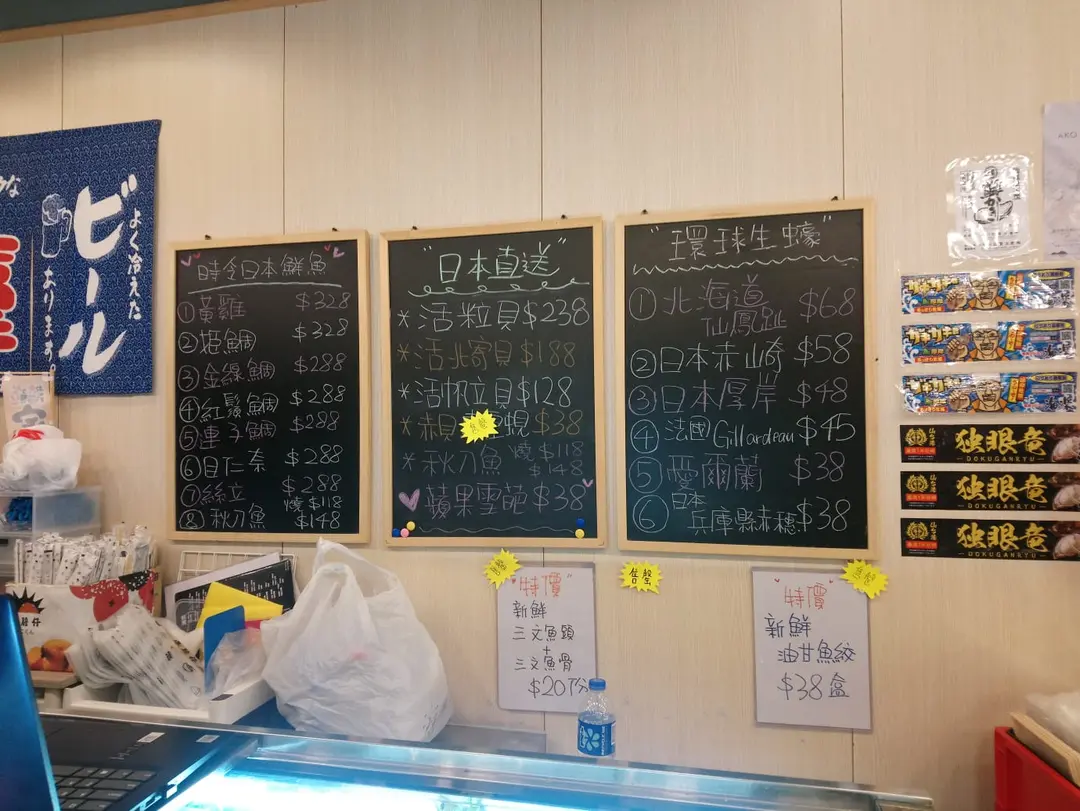 ビール
よく冷えた
あります
"時令日本鮮魚"
①黃雞 $328
②姫鯛 $328
③金線鯛 $288
④紅鬚鯛 $288
⑤連子鯛 $288
⑥目仁奈 $288
⑦絲立 $288
⑧秋刀魚 燒$118
$148
"日本直送"
*活粒貝$238
*活北寄貝$188
*活帆立貝$128
*赤貝 蜆$38
售罄
*秋刀魚 燒$118
$148
蘋果雪葩$38
"環球生蠔"
①北海道
仙鳳趾 $68
②日本赤山崎 $58
③日本厚岸 $48
④法國Gillardeau $45
⑤愛爾蘭 $38
⑥日本
兵庫縣赤穗$38
独眼竜
DOKUGANRYU
独眼竜
DOKUGANRYU
独眼竜
DOKUGANRYU
"特價"
新鮮
三文魚頭
+
三文魚骨
$20/份
售罄
特價
新鮮
油甘魚鮫
$38盒
售罄